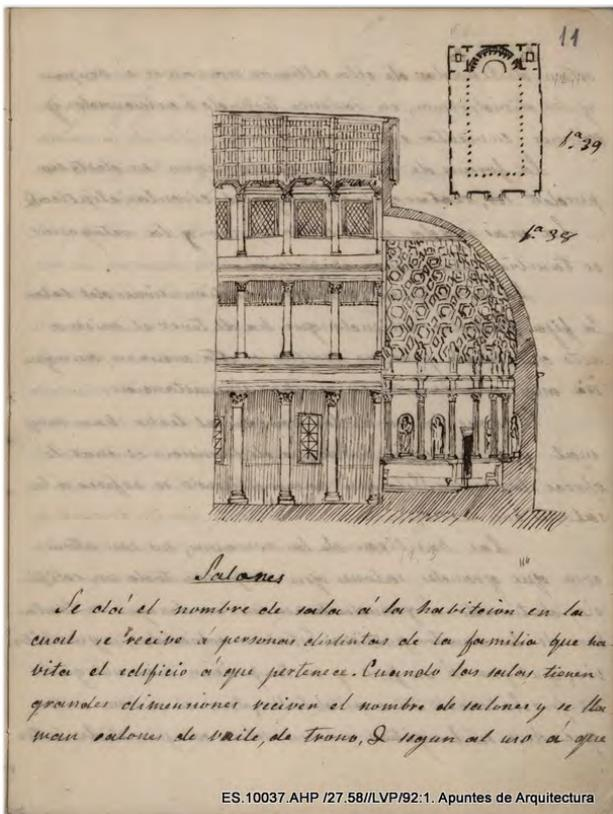 11
fª 39
fª 38
Salones
Se dá el nombre de sala á la habitcion en la
cual se recive á personas distintas de la familia que ha-
vita el edificio á que pertenece. Cuando las salas tienen
grandes dimensiones reciven el nombre de salones y se lla
man salones de vaile, de trono, & segun al uso á que
ES.10037.AHP /27.58//LVP/92:1. Apuntes de Arquitectura